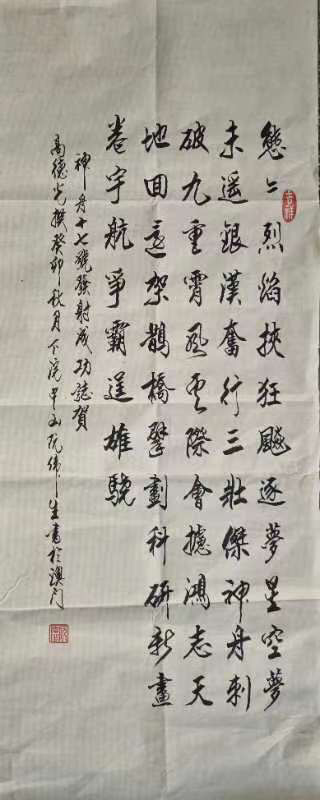 熊〻烈焰挾狂飈逐夢星空夢
未遥銀漢奮行三壯傑神舟刺
破九重霄風雲際會攄鴻志天
地回還架鵲橋擘劃科研新畫
卷宇航爭霸逞雄驍
神舟十七號發射成功誌賀
高德光撰癸卯秋月下浣中山阮衛生書於澳門
吉祥